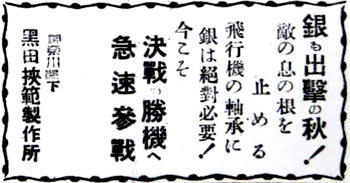 銀も出擊の秋!
敵の息の根を
止める
飛行機の軸承に
銀は絕對必要!
今こそ
決戰の勝機へ
急速參戰
神奈川縣下
黑田挾範製作所